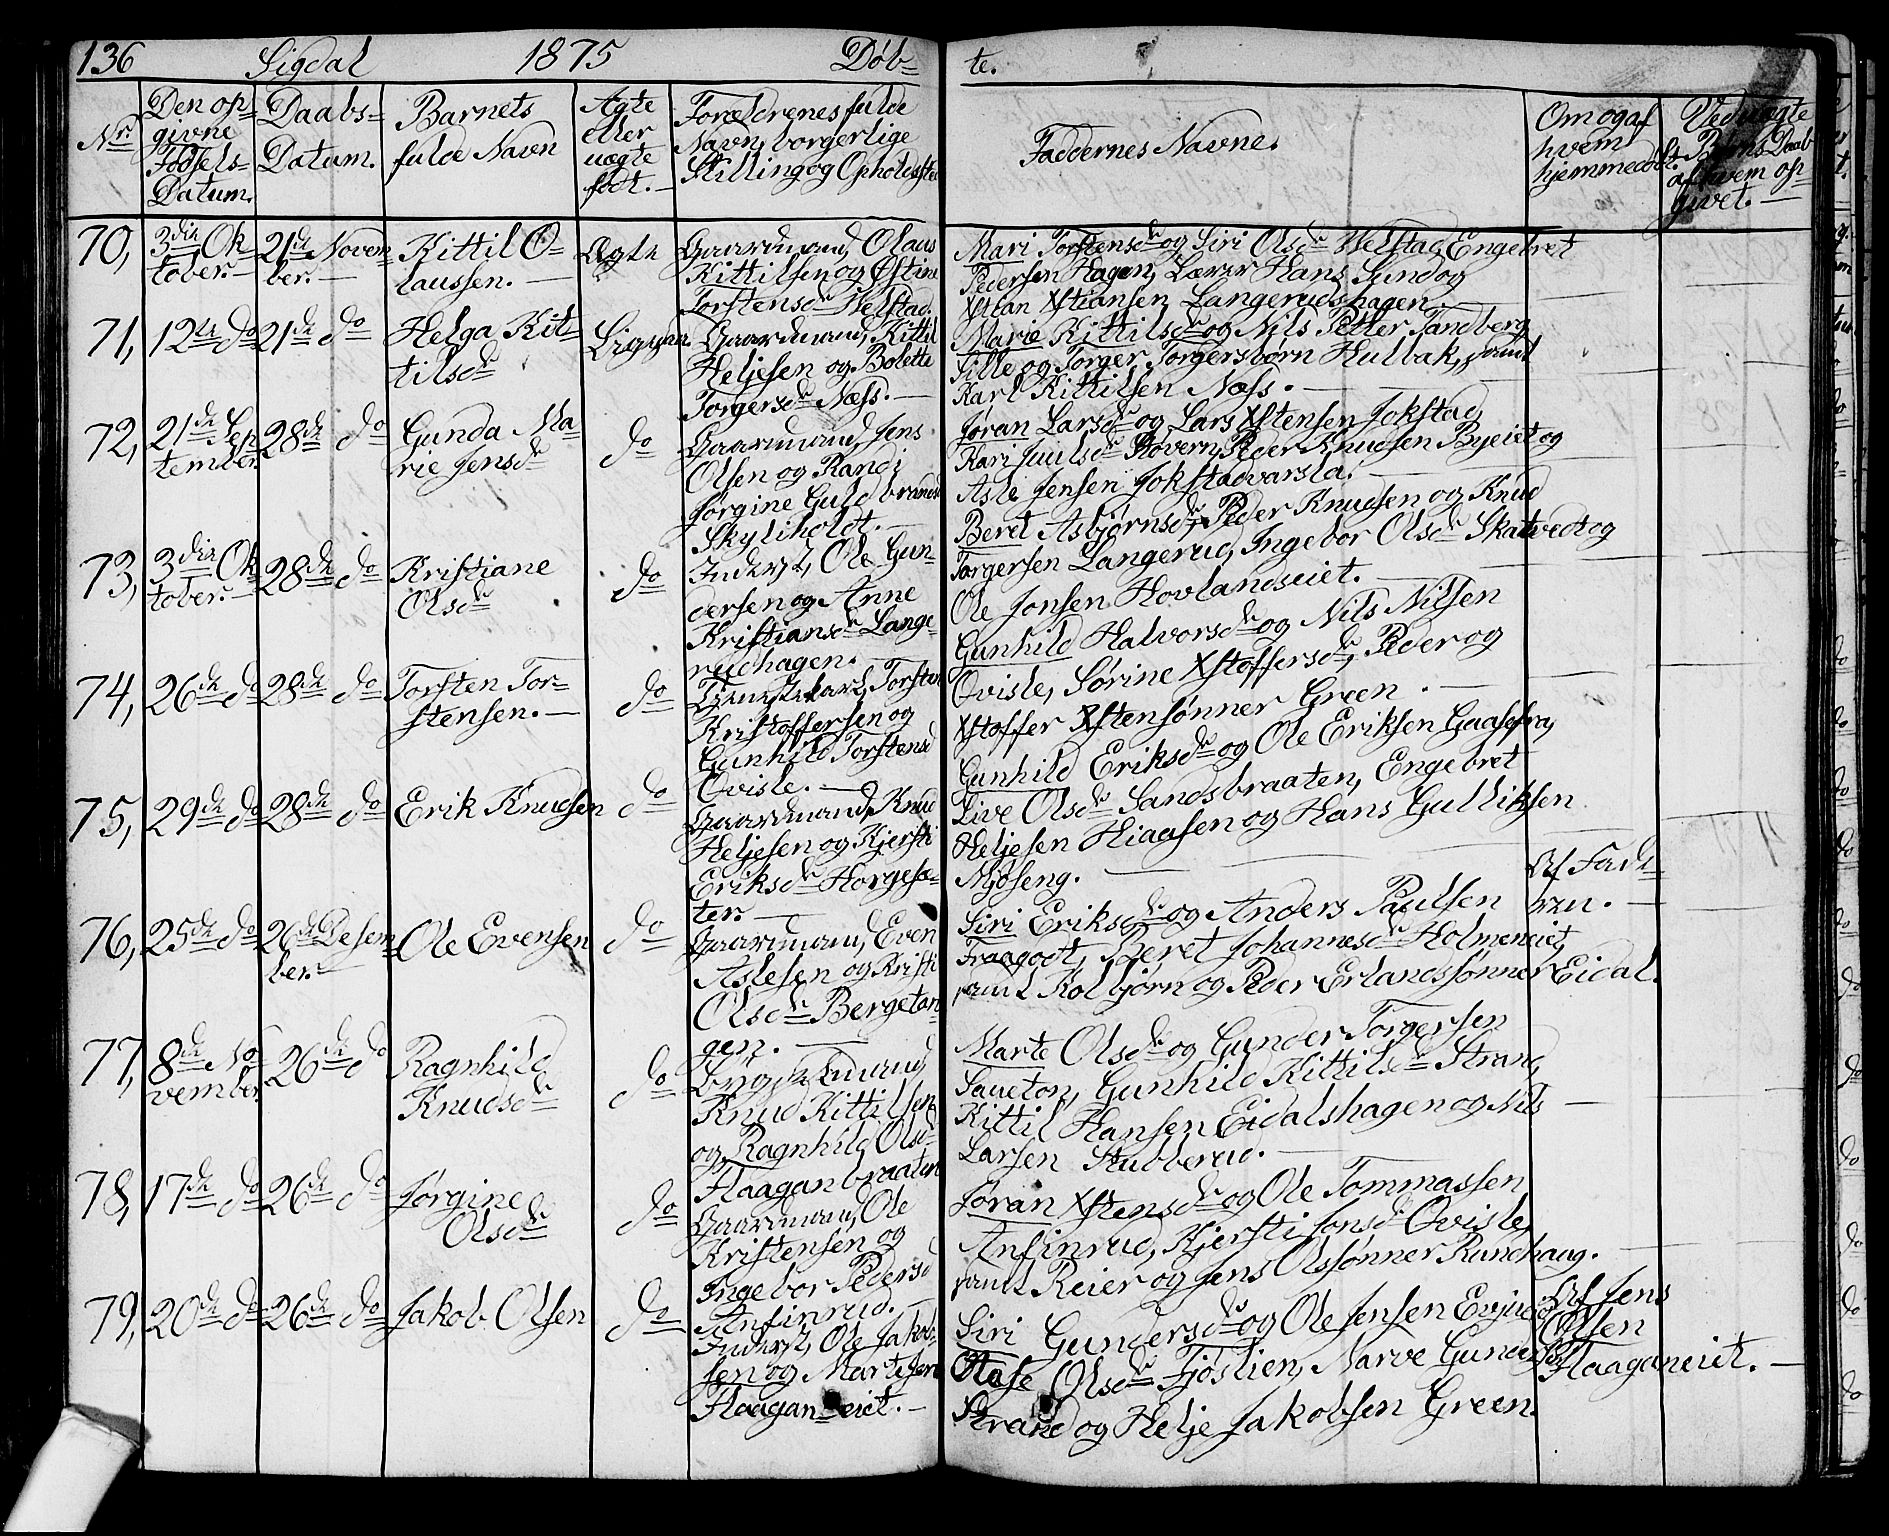 136 Sigdal 1875 Døb= te.
Nr.
Den op=
givne
Fødsels=
Datum.
Daabs=
Datum.
Barnets
fulde Navn
Ægte
eller
uægte
født.
Forældrenes fulde
Navn, borgerlige
Stilling og Opholdssted
Faddernes Navne.
Om og af
hvem
hjemmedøbt.
Ved uægte
Børns Daab
af hvem op=
givet.
70,
3die Ok=
tober.
21de Novem=
ber.
Kittil O=
laussen.
Ægte
Gaardmand, Olaus
Kittilsen og Østine
Torstensdr Velstad.
Mari Torstensdr og Siri Olsdr Velstad, Engebret
Pedersen Hagen, Lærer Hans Lund og
Xstian Xstiansen Langerudshagen.
71,
12te do
21de do
Helga Kit=
tilsdr
Gaardmand, Kittil
Heljesen og Bolette
Torgersdr Næss.
Marie Kittilsdr og Nils Petter Tandberg,
Sille og Torger Torgersbørn Hulbak, samt
Karl Kittilsen Næss.
72,
21de Sep
tember.
28de do
Gunda Ma=
rie Jensdr
do
Gaardmand, Jens
Olsen og Randi
Jørgine Guldbrandsd
Skyliholdt.
Jøran Larsdr og Lars Xstensen Jokstad,
Kari Juulsdr Hovern, Peder Knudsen Byeiet og
Asle Jensen Jokstadvarsla.
73,
3die Ok=
tober.
28de do
Kristiane
Olsdr
do
Inderst, Ole Gun=
dersen og Anne
Kristiansdr Lange=
rudhagen.
Beret Asbjørnsdr, Peder Knudsen og Knud
Torgersen Langerud, Ingebor Olsdr Skatvedt og
Ole Jonsen Hovlandseiet.
74,
26de do
28de do
Torsten Tor=
stensen.
do
Tjenestekarl, Torsten
Kristoffersen og
Gunhild Torstensd
Qvisle.
Gunhild Halvorsdr og Nils Nilsen
Qvisle, Sørine Xstoffersdr, Peder og
Xstoffer Xstensønner Green.
75,
29de do
28de do
Erik Knudsen
do
Gaardmand, Knud
Heljesen og Kjersti
Eriksdr Horgesæ=
ter.
Gunhild Eriksdr og Ole Eriksen
Live Olsdr Sandsbraaten, Engebret
Heljesen Hiaasen og Hans Gulliksen
Mjøseng.
76,
25de do
26de Desem=
ber.
Ole Evensen
do
Gaardmand, Even
Aslesen og Kristi
Olsdr Bergetan=
gen.
Siri Eriksdr og Anders Paulsen
Fraagodt, Beret Johannesdr Holmeneiet,
samt Kolbjørn og Peder Erlandssønner Eidal.
Af Fade=
ren.
77,
8de No
vember.
26de do
Ragnhild
Knudsdr
do
Knud Kittilsen
og Ragnhild Olsd
Haaganbraaten
Marte Olsdr og Gunder Torgersen
Saueton, Gunhild Kittilsdr Strand,
Kittil Hansen Eidalshagen og Nils
Larsen Stubberud.
78,
17de do
26de do
Jørgine
Olsdr
do
Gaardmand, Ole
Kristensen og
Ingebor Pedersd
Anfinrud.
Jøran Xstensdr og Ole Tommassen
Anfinrud, Kjersti Jonsdr Qvisle,
samt Reier og Jens Olssønner Rundhaug.
79,
20de do
26de do
Jakob Olsen
do
Inderst, Ole Jakob=
sen og Marte Jens
Haaganeiet.
Siri Gundersdr og Ole Jensen Evju,
Olsdr Fjøslien, Narve Gunders
Strand og Helje Jakobsen Green.
Af Jens
Olsen
Haaganeiet.